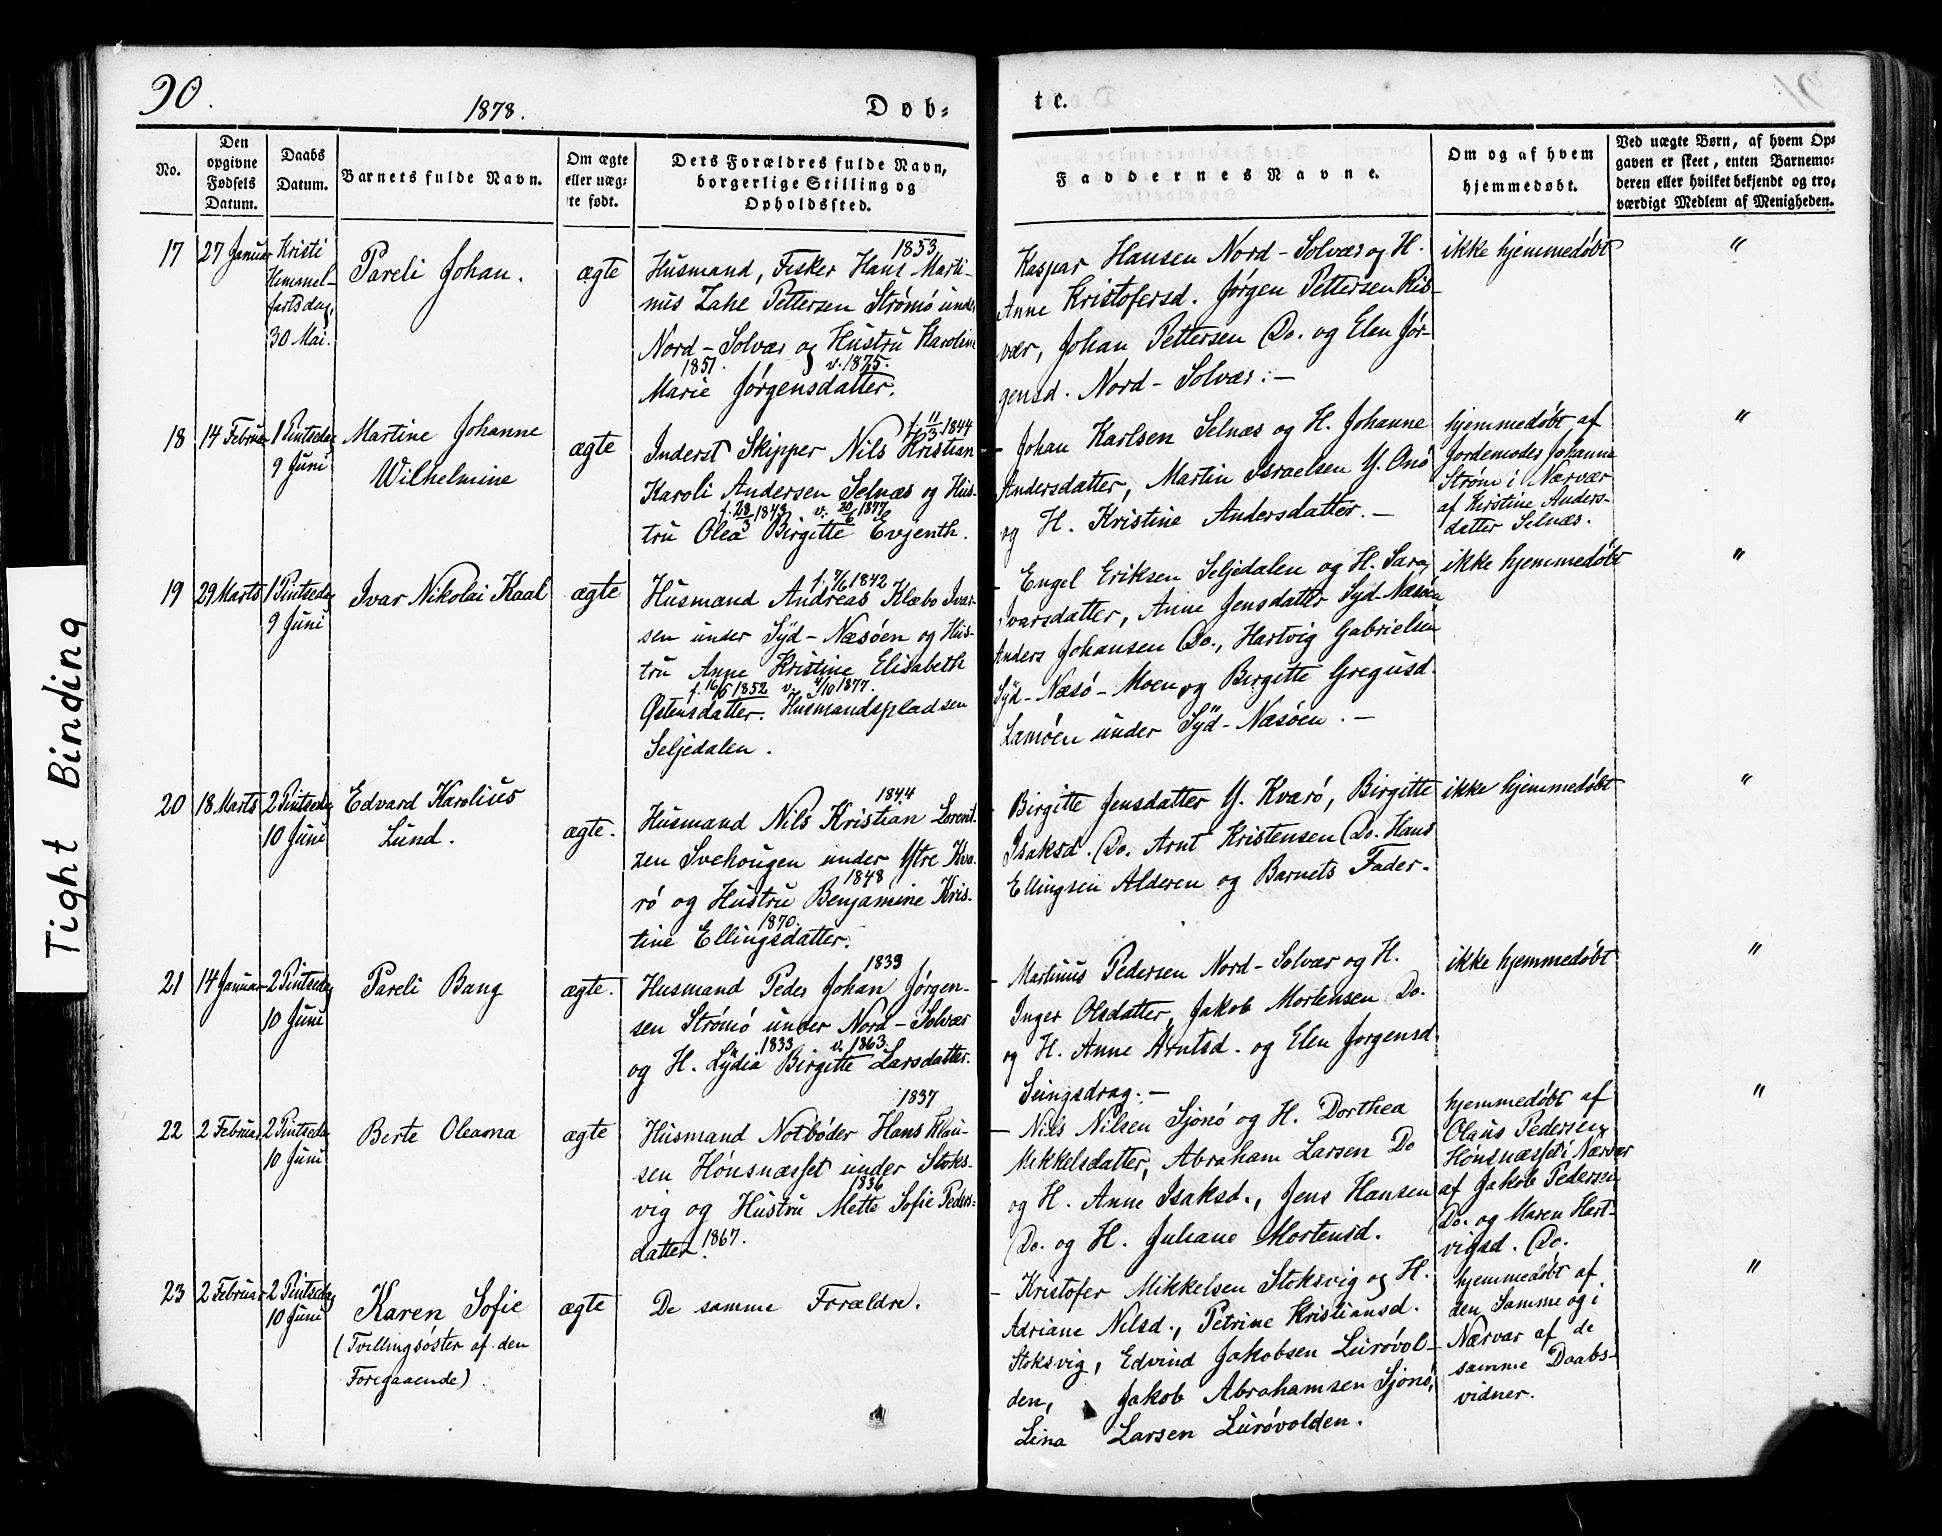 90.
1878.
Døb=
te.
No.
Den opgivne Fødsels Datum.
Daabs Datum.
Barnets fulde Navn.
Om ægte eller uæg-te født.
Dets Forældres fulde Navn, borgerlige Stilling og Opholdssted.
Faddernes Navne.
Om og af hvem hjemmedøbt.
Ved uægte Børn, af hvem Op-gaven er skeet, enten Barnemo-deren eller hvilket bekjendt og tro-værdigt Medlem af Menigheden.
17
27 Januar
Kristi
Himmel-
fartsdag,
30 Mai.
Pareli Johan.
ægte
1853
Husmand, Fisker Hans Marti-
nus Zahl Pettersen Strømø under
Nord-Solvær og Hustru Karoline
1851. v. 1875.
Marie Jørgensdatter.
Kaspar Hansen Nord-Solvær og H.
Anne Kristofersd. Jørgen Pettersen Ris-
vær, Johan Pettersen Do. og Elen Jør-
gensd. Nord-Solvær. —
ikke hjemmedøbt
"
18
14 Februar
1 Pintsedag
9 Juni
Martine Johanne
Wilhelmine
ægte
f. 11/3 1844
Inderst Skipper Nils Kristian
Karoli Andersen Selnæs og Hus-
f. 28/3 1843 v. 20/6 1877
tru Olea Birgitte Evjenth.
- Johan Karlsen Selnæs og H. Johanne
Andersdatter, Martin Israelsen Y. Onø
og H. Kristine Andersdatter. —
hjemmedøbt af
Jordemoder Johanne
Strøm i Nærvær
af Kirstine Anders-
datter Selnæs.
"
19
29 Marts
1 Pintsedag
9 Juni
Ivar Nikolai Kaal
ægte
f. 7/6 1842
Husmand Andreas Klæbo Ivar-
sen under Syd-Næsøen og Hus-
tru Anne Kristine Elisabeth
f. 16/5 1852 v. 4/10 1877.
Østensdatter. Husmandspladsen
Seljedalen.
- Engel Eriksen Seljedalen og H. Sara
Ivarsdatter, Anne Jensdatter Syd-Næsøen
Anders Johansen Do., Hartvig Gabrielsen
Syd-Næsø-Moen og Birgitte Gregusd.
Lamøen under Syd-Næsøen. —
ikke hjemmedøbt
"
20
18 Marts
2 Pintsedag
10 Juni
Edvard Karolius
Lund.
ægte.
1844
Husmand Nils Kristian Lorent-
zen Svehougen under Ytre Kva-
1848
rø og Hustru Benjamine Kris-
1870.
tine Ellingsdatter.
- Birgitte Jensdatter Y. Kvarø, Birgitte
Isaksd. Do. Arnt Kristensen Do. Hans
Ellingsen Alderen og Barnets Fader.
ikke hjemmedøbt
"
21
14 Januar
2 Pintsedag
10 Juni
Pareli Bang
ægte.
1839
Husmand Peder Johan Jørgen-
sen Strømø under Nord-Solvær
1833 v. 1863.
og H. Lydia Birgitte Larsdatter.
- Martinus Pedersen Nord-Solvær og H.
Inger Olsdatter, Jakob Mortensen Do.
og H. Anne Arntsd. og Elen Jørgensd.
Seingsdrag. —
ikke hjemmedøbt
"
22
2 Februar
2 Pintsedag
10 Juni
Berte Oleana
ægte
1837
Husmand Notbøder Hans Klau-
sen Hønsnæsset under Stoks-
1836
vig og Hustru Mette Sofie Peders-
datter. 1867.
- Nils Nilsen Sjonø og H. Dorthea
Mikkelsdatter, Abraham Larsen Do
og H. Anne Isaksd., Jens Hansen
Do. og H. Juliane Mortensd.
hjemmedøbt af
Olaus Pedersen
Hønsnæsset i Nærvær
af Jakob Pedersen
Do. og Maren Hart-
vigsd. Do.
"
23
2 Februar
2 Pintsedag
10 Juni
Karen Sofie
(Tvillingsøster af den
Foregaaende)
ægte
De samme Forældre.
- Kristofer Mikkelsen Stoksvig og H.
Adriane Nilsd., Petrine Kristiansd.
Stoksvig, Edvind Jakobsen Lurøvol-
den, Jakob Abrahamsen Sjonø,
Lina Larsen Lurøvolden.
hjemmedøbt af
den Samme og i
Nærvær af de
samme Daabs-
vidner.
"
Tight Binding